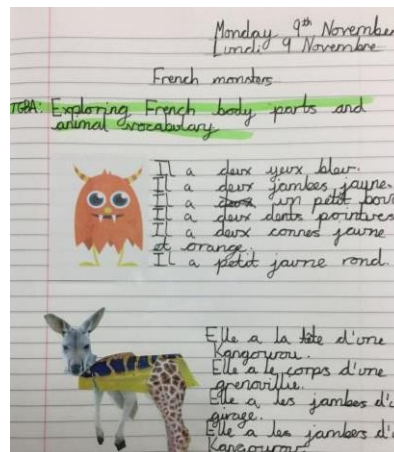 Monday 9th November
Lundi 9 Novembre
French monsters
TGBA: Exploring French body parts and
animal vocabulary
Il a deux yeux bleu.
Il a deux jambes jaune.
Il a un petit
Il a deux dents pointues
Il a deux connes jaune
et orange.
Il a petit jaune rond.
Elle a la tête d'une
Kangourou.
Elle a le corps d'une
grenouille.
Elle a les jambes
girage.
Elle a les jambers
Kangourou